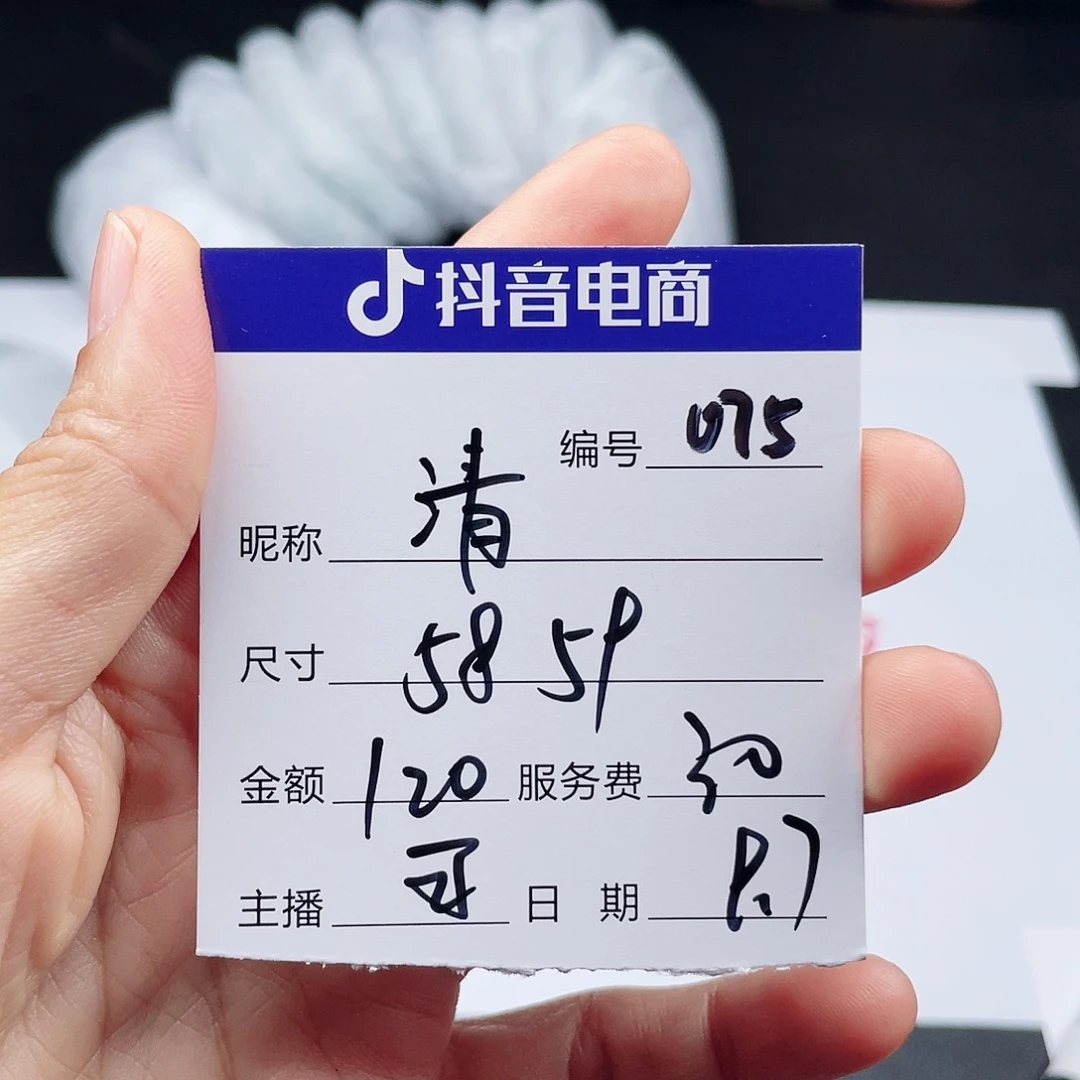 抖音电商
编号 075
昵称 清
尺寸 58 59
金额 120 服务费 30
主播 日 期 8.7